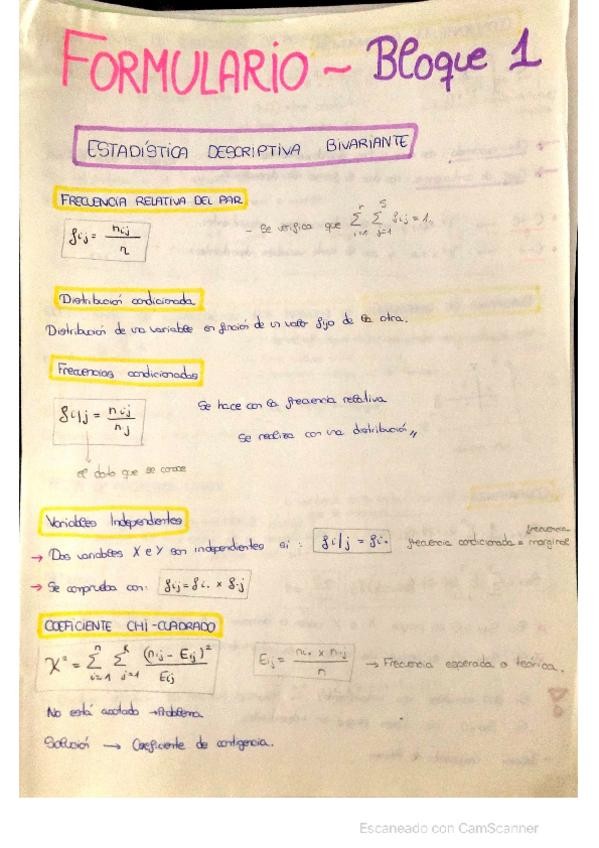 FORMULARIO ~ Bloque 1
ESTADÍSTICA DESCRIPTIVA BIVARIANTE
FRECUENCIA RELATIVA DEL PAR
fij = nij / n
- Se verifica que Σ i=1 r Σ j=1 s fij = 1.
Distribución condicionada
Distribución de una variable en función de un valor fijo de la otra.
Frecuencias condicionadas
fi|j = nij / nj
Se hace con la frecuencia relativa
Se realiza con una distribución,,
el dato que se conoce
Variables Independientes
→ Dos variables X e Y son independientes si : fi|j = fi. frecuencia condicionada = frecuencia marginal
→ Se comprueba con: fij = fi. x f.j
COEFICIENTE CHI-CUADRADO
χ² = Σ i=1 n Σ j=1 k (nij - Eij)² / Eij
Eij = ni. x n.j / n → Frecuencia esperada o teórica.
No está acotado → Problema
Solución → Coeficiente de contigencia.
Escaneado con CamScanner